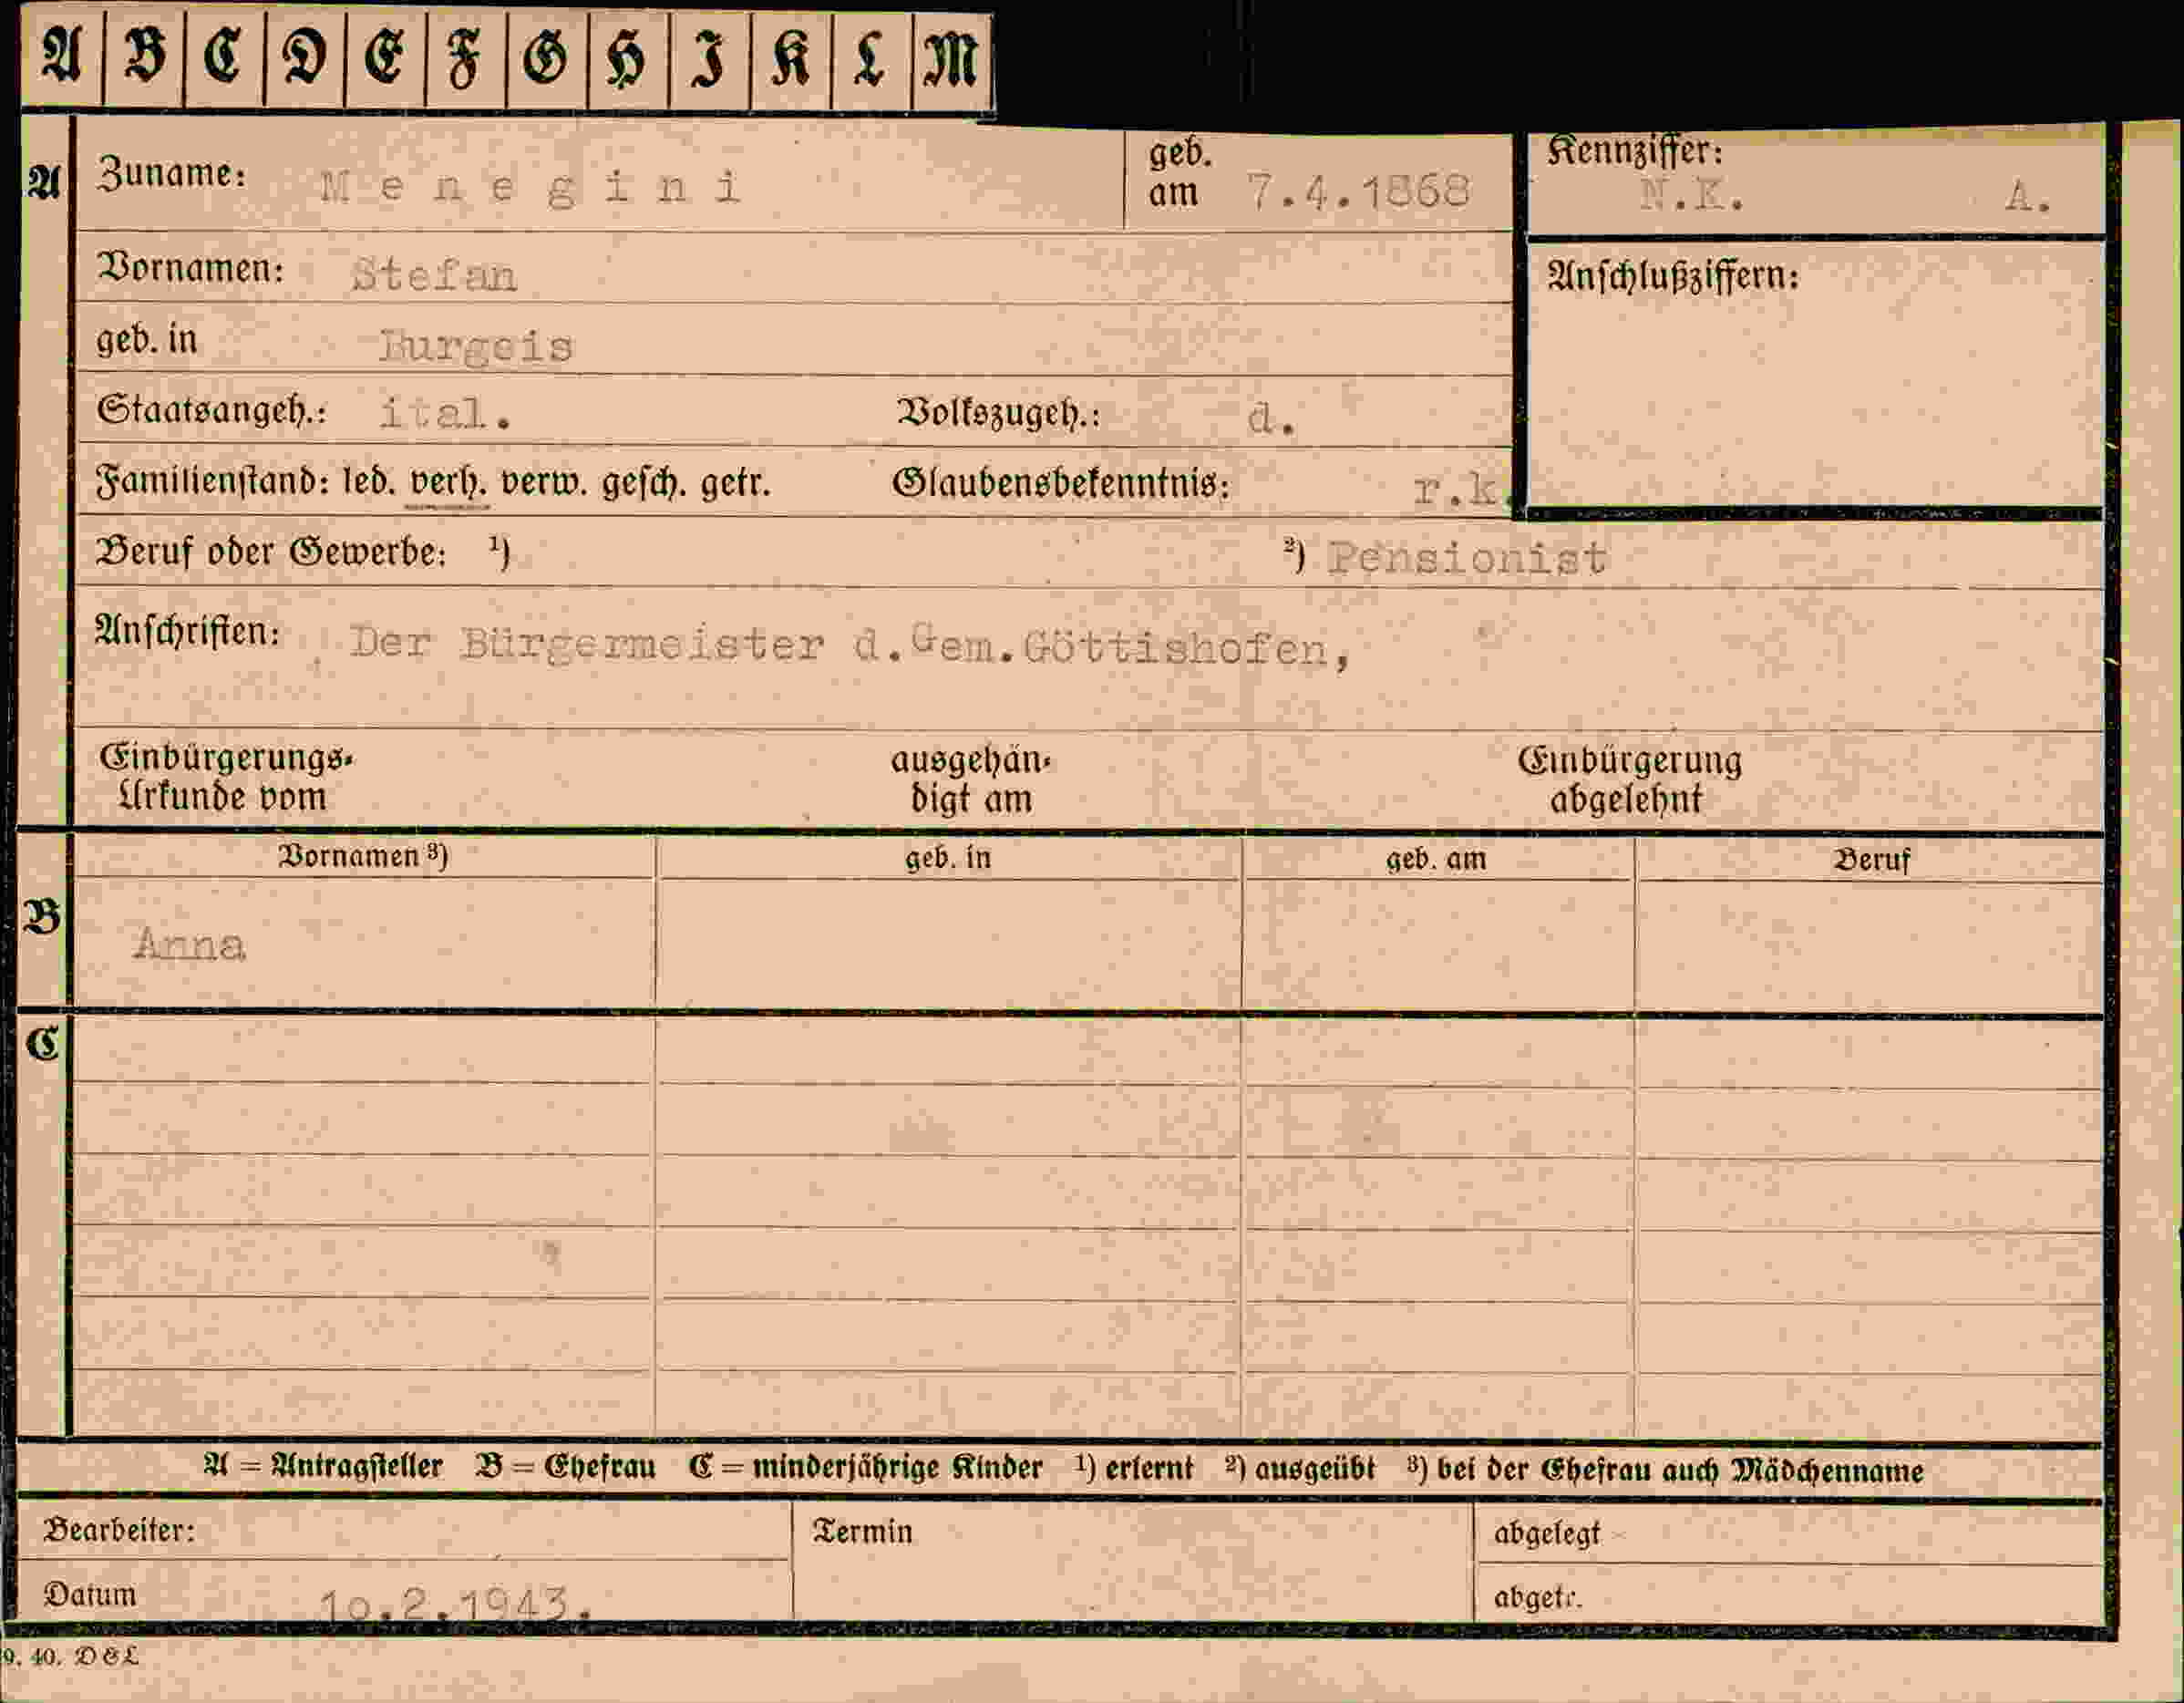 A B C D E F G H I K L M
A Zuname: Menegini geb. am 7.4.1868 Kennziffer: N.K. A.
Vornamen: Stefan Anschlußziffern:
geb. in Burgeis
Staatsangeh.: ital. Volkszugeh.: d.
Familienstand: led. verh. verw. gesch. getr. Glaubensbekenntnis: r.k.
Beruf oder Gewerbe: ¹) ²) Pensionist
Anschriften: Der Bürgermeister d.Gem.Göttishofen,
Einbürgerungs- ausgehän- Einbürgerung
Urkunde vom digt am abgelehnt
Vornamen ³) geb. in geb. am Beruf
B
Anna
C
A = Antragsteller B = Ehefrau C = minderjährige Kinder ¹) erlernt ²) ausgeübt ³) bei der Ehefrau auch Mädchenname
Bearbeiter: Termin abgelegt
Datum 10.2.1943. abgetr.
9. 40. D&L